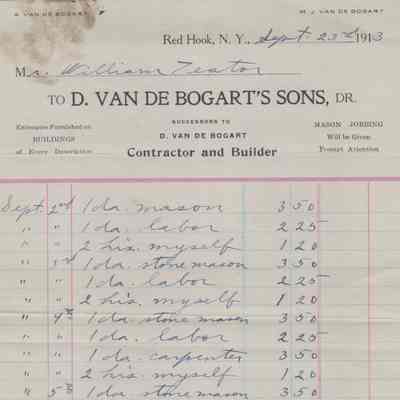 A. VAN DE BOGART M. J. VAN DE BOGART
Red Hook, N. Y., Sept 23rd 1913
Mr. William Teator
TO D. VAN DE BOGART'S SONS, DR.
SUCCESSORS TO
D. VAN DE BOGART
Contractor and Builder
Estimates Furnished on
BUILDINGS
of Every Description
MASON JOBBING
Will be Given
Prompt Attention
Sept. 2nd 1 da. mason 3 50
" " 1 da. labor 2 25
" " 2 hrs. myself 1 20
" 3rd 1 da. stone mason 3 50
" " 1 da. labor 2 25
" " 2 hrs. myself 1 20
" 4th 1 da. stone mason 3 50
" " 1 da. labor 2 25
" " 1 da. carpenter 3 50
" " 2 hrs. myself 1 20
" 5th 1 da. stone mason 3 50